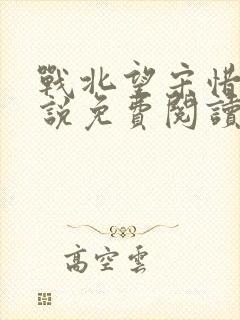 戰北望宋惜
說免費閱讀
高空雲